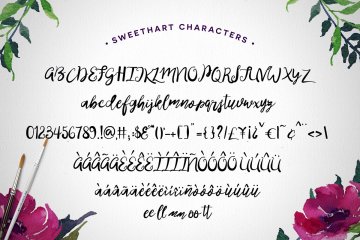 • SWEETHART CHARACTERS •
ABCDEFGHIJKLMNOPQRSTUVWXYZ
abcdefghijklmnopqrstuvwxyz
ÀÁÂÃÄÈÉÊËÌÍÎÏÑÒÓÔÕÖÙÚÛÜ
àáâãäèéêëìíîïñòóôõöùúûü
ee ll mm oo tt